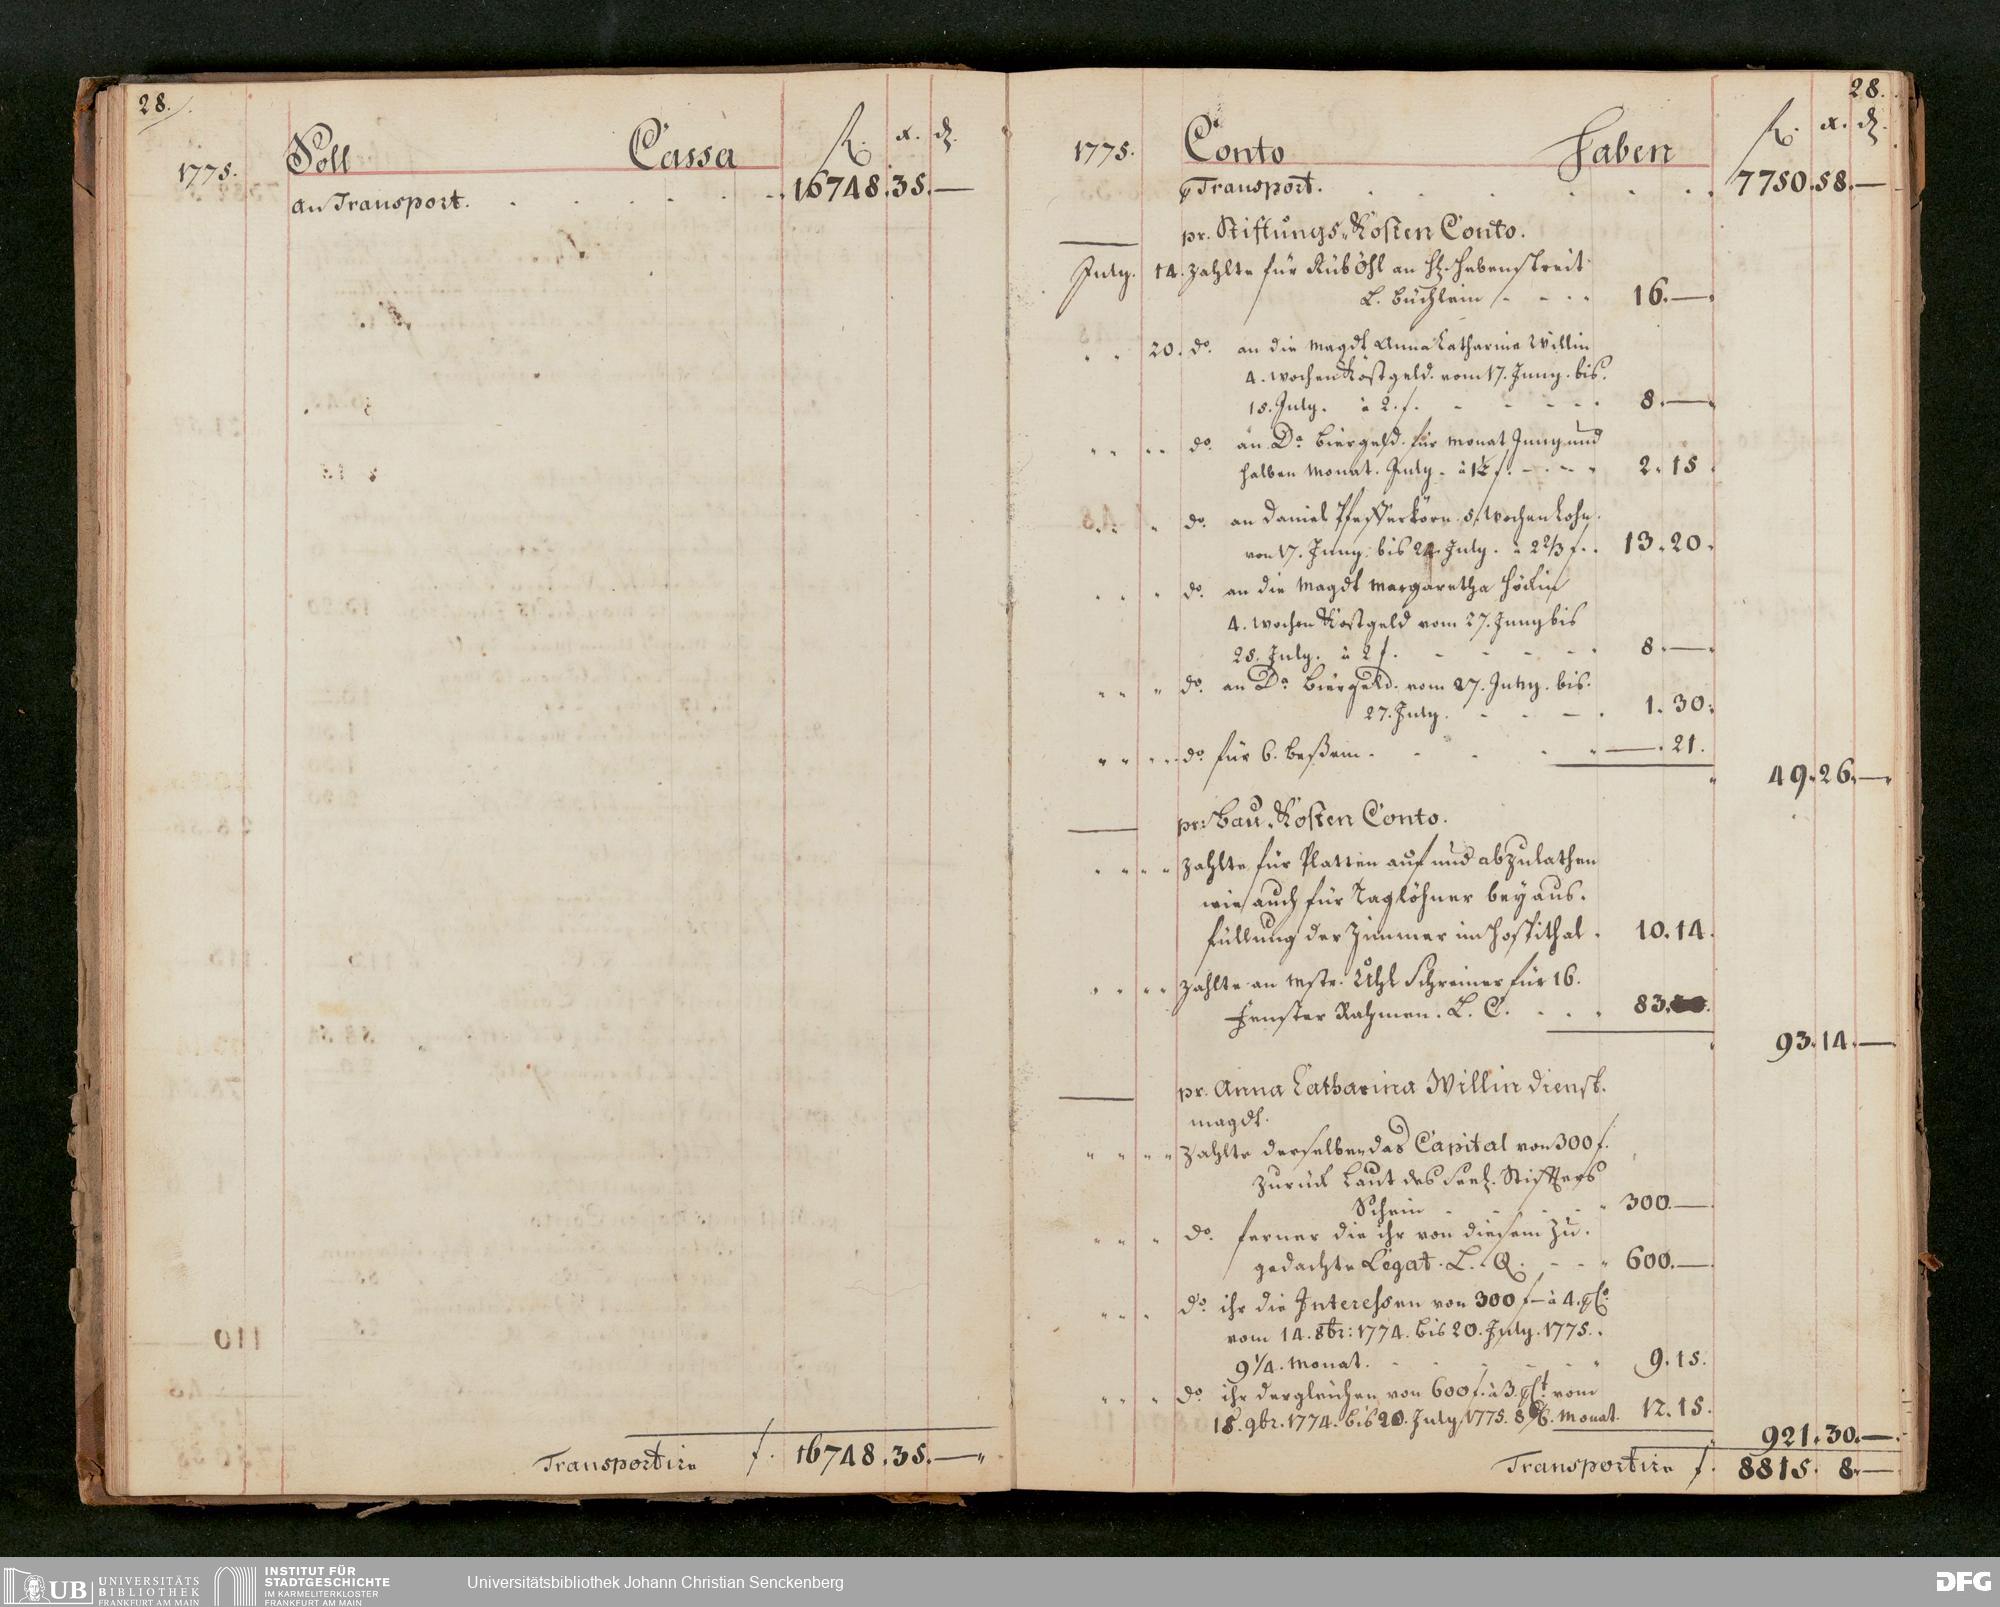 28.
Soll Cassa f. x. ₰.
1775.
an Transport. 16748. 35. —
Transportire f. 16748. 35. —
28.
1775. Conto Haben f. x. ₰.
p Transport. 7750. 58. —
pr. Stiftungs-Kosten Conto.
July. 14. zahlte für Ruböhl an H. Hebenstreit
L. Büchlein 16. —
" " 20. do. an die Magdt Anna Catharina Willin
4. wochen Kostgeld. vom 17. Juny. bis.
15. July. à 2. f. 8. —
" " " " do. an Da. Biergeld. für Monat Juny und
halben Monat. July. à 1½ f. 2. 15
" " " do. an Daniel Pfefferkorn. 5. Wochen Lohn.
von 17. Juny. bis 24. July. à 2 2/3 f. 13. 20.
" " " do. an die Magdt Margaretha Höckin
4. wochen Kostgeld vom 27. Juny bis
25. July. à 2 f. 8. —
" " " do. an Da. Biergeld. vom 27. Juny. bis.
27. July. 1. 30.
" " " " do. für 6. Beßem. — . 21.
49. 26. —
pr. Bau-Kosten Conto.
" " " " zahlte für Platten auf und abzulathen
wie auch für Taglöhner bey aus-
füllung der Zimmer im Hospithal. 10. 14.
" " " " zahlte an Mstr. Uhl Schreiner für 16.
Fenster Rahmen. L. C. 83.
93. 14. —
pr. Anna Catharina Willin dienst-
magdt.
" " " " zahlte derselben das Capital von 300 f.
zurück Laut des seel. Stiffters
Schein 300. —
" " " do. ferner die ihr von diesem zu-
gedachte Legat. L. Q. 600. —
" " " do. ihr die Interessen von 300 f — à 4. pCto.
vom 14. 8br: 1774. bis 20. July. 1775.
9 1/4. Monat. 9. 15.
" " " do. ihr dergleichen von 600 f. à 3. pCt. vom
15. 9br. 1774. bis 20. July 1775. Monat. 12. 15.
921. 30. —
Transportire f. 8815. 8. —
UB UNIVERSITÄTS
BIBLIOTHEK
FRANKFURT AM MAIN
INSTITUT FÜR
STADTGESCHICHTE
IM KARMELITERKLOSTER
FRANKFURT AM MAIN
Universitätsbibliothek Johann Christian Senckenberg
DFG